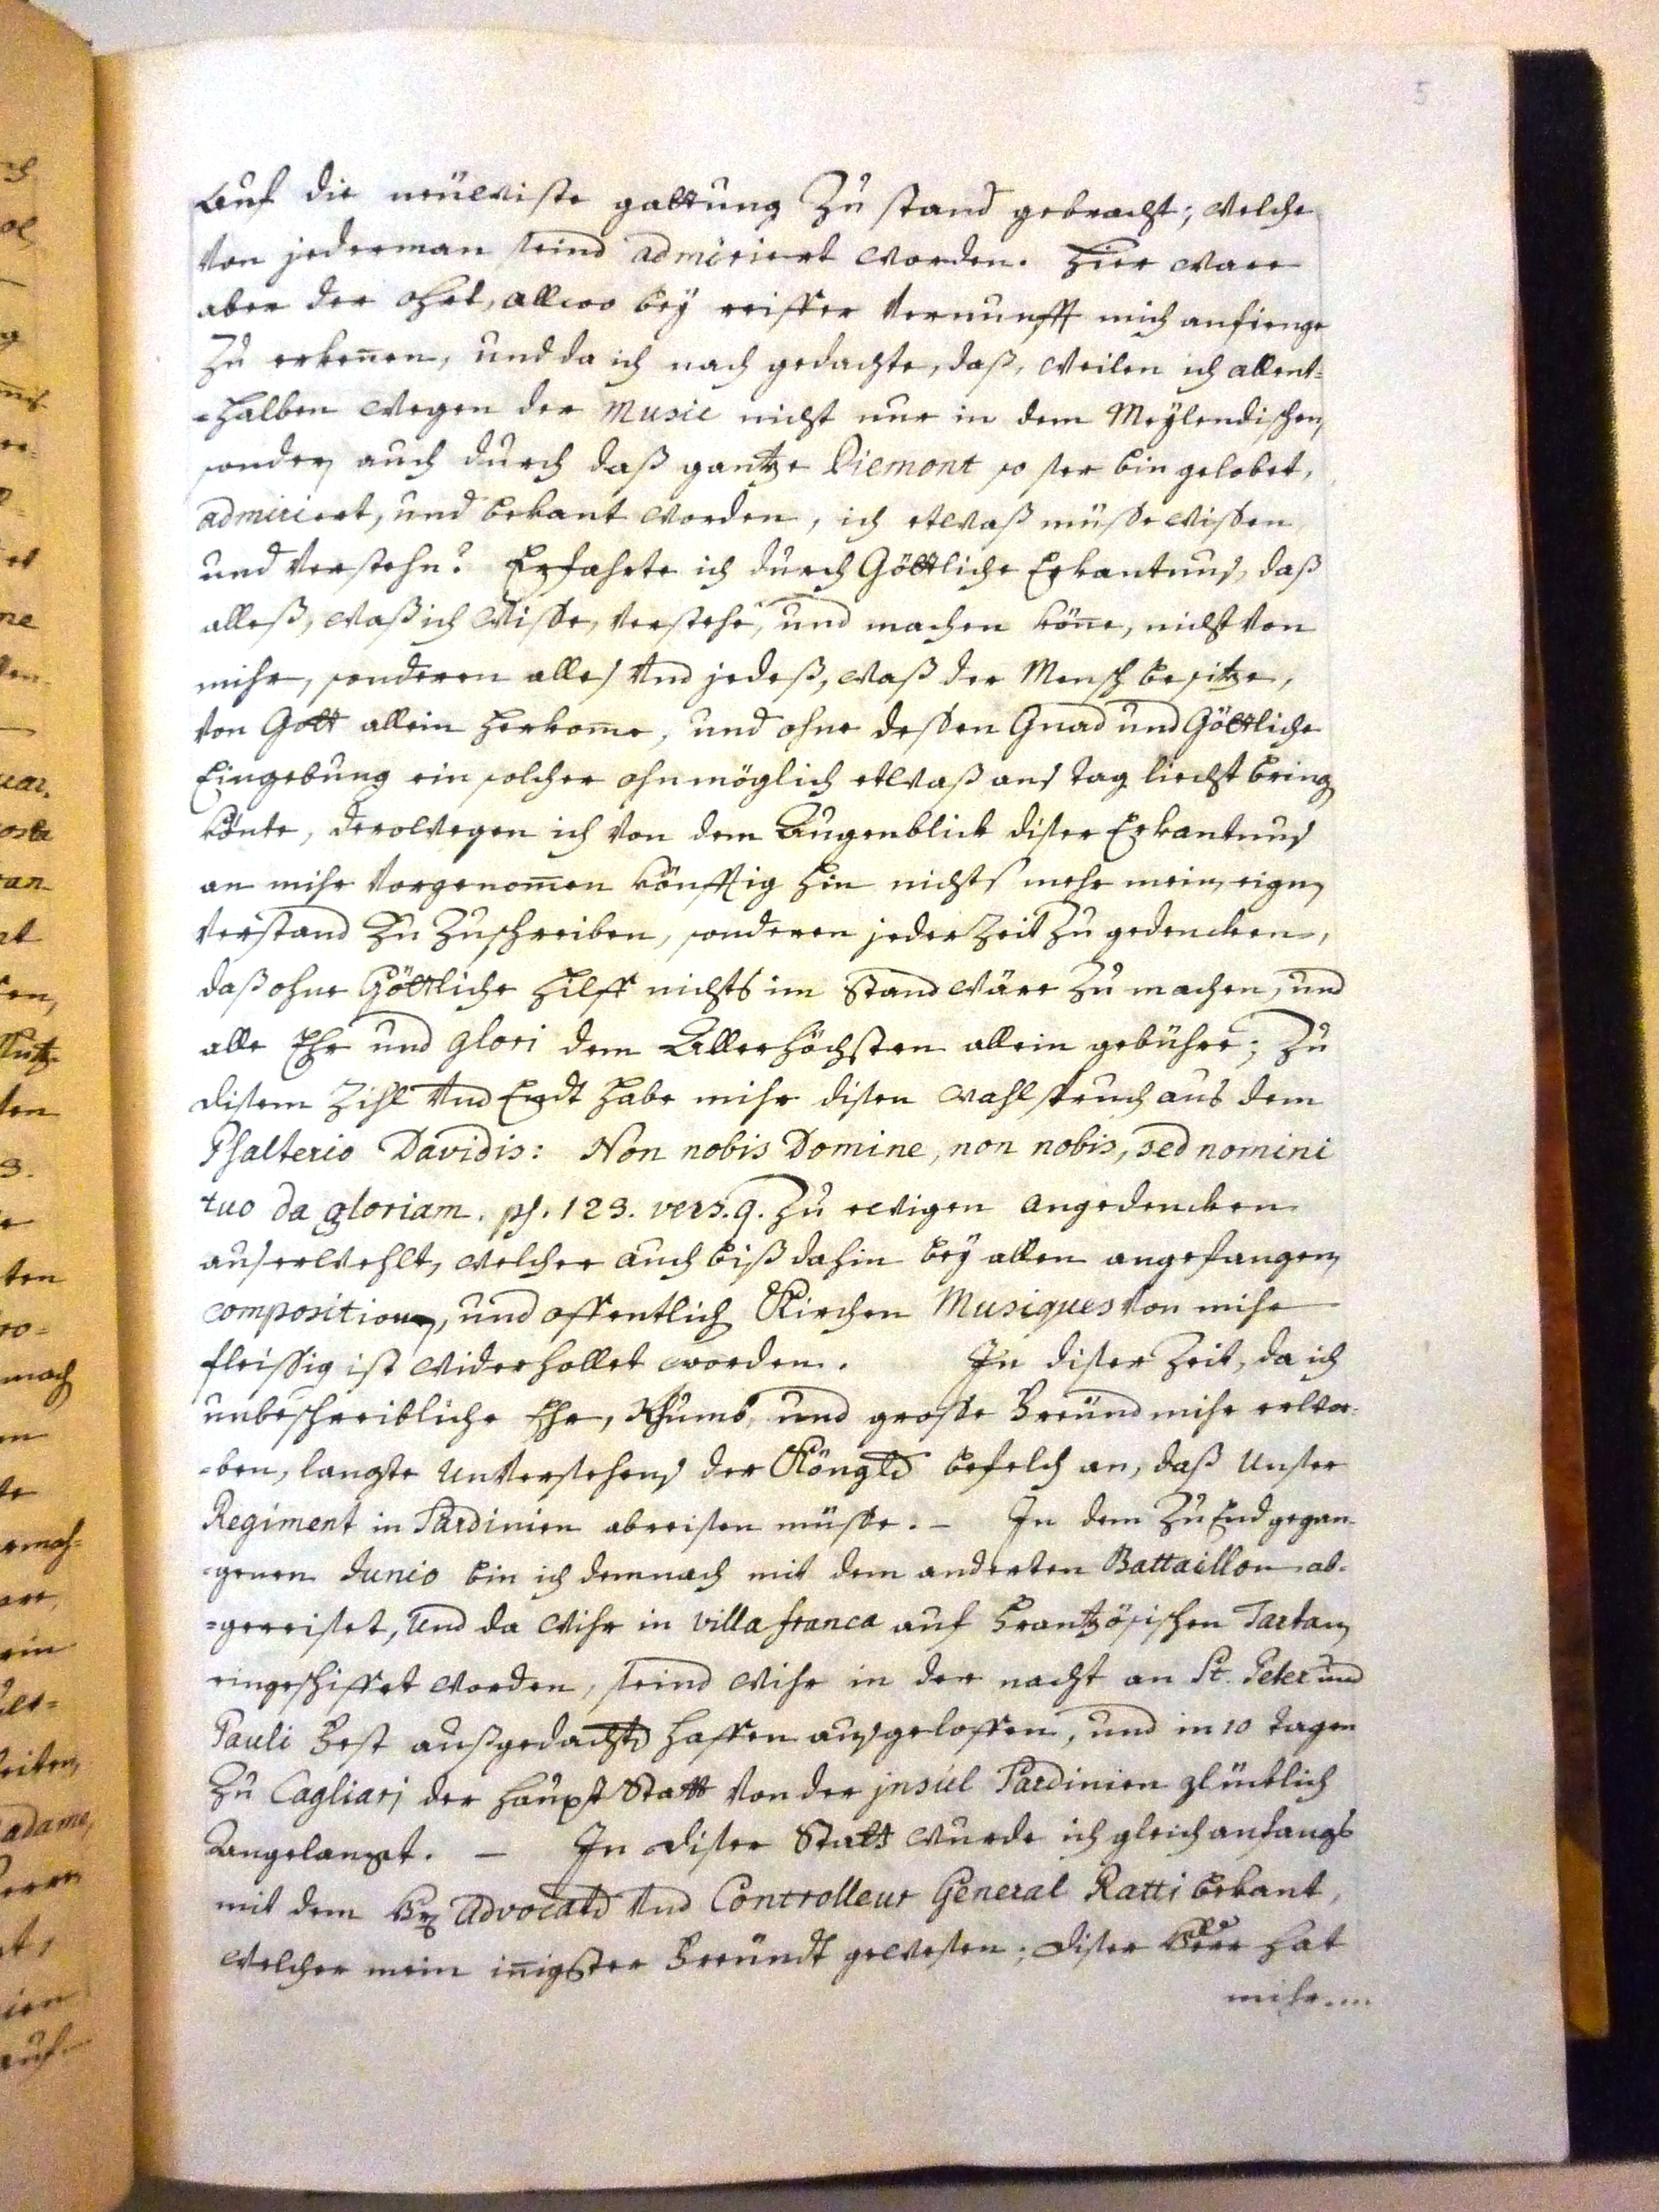 5
Auf die neüwiste gattung Zu stand gebracht; welche
von jederman seind admiriert worden. Hier ware
aber der ohrt, allwo beÿ reiffer vernunfft mich anfienge
Zu erkenen, und da ich nach gedachte, daß, weilen ich allent=
=halben wegen der Music nicht nur in dem Meÿlendischen,
sonder auch durch daß gantze Piemont so ser bin gelobet,
admiriert, und bekant worden, ich etwaß müsse wissen,
und verstehn? Erfahrte ich durch Göttliche Erkantnus, daß
alleß, waß ich wisse, verstehe, und machen köne, nicht von
mihr, sonderen alles und jedeß, waß der Mensch besitze,
von Gott allein herkome, und ohne dessen Gnad und Göttliche
Eingebung ein solcher ohnmöglich etwaß ans tag liecht bring
könte, derowegen ich von dem Augenblick diser Erkantnus
an mihr vorgenomen könfftig hin nichts mehr mein eign
verstand Zu Zuschreiben, sonderen jederZeit Zu gedencken,
daß ohne Göttliche Hilff nichts im Stand wäre Zu machen, und
alle Ehr und glori dem Allerhöchsten allein gebühre; Zu
disem Zihl und Endt habe mihr disen wahlspruch aus dem
Psalterio Davidis: Non nobis Domine, non nobis, sed nomini
tuo da gloriam. ps. 123. vers. 9. Zu ewigen angedencken
auserwehlt, welcher auch biß dahin beÿ allen angefangen
composition, und offentlich Kirchen Musiques von mihr
fleissig ist widerhollet worden. In diser Zeit, da ich
unbeschreibliche Ehr, Rhumb, und grosse Freünd mihr erwor=
=ben, langte unversehens der Königld befelch an, daß unser
Regiment in Sardinien abreisen müsse. – In dem Zu End gegan=
=genen Junio bin ich demnach mit dem anderten Battaillon ab=
=gereiset, und da wihr in villa franca auf Frantzösischen Tartan
eingeschiffet worden, seind wihr in der nacht an St. Peter und
Pauli Fest auß gedachtd haffen ausgeloffen, und in 10 tagen
Zu Cagliari der Haupt Statt von der jnsul Sardinien glücklich
Angelangt. – In diser Statt wurde ich gleich anfangs
mit dem Hr Advocatd und Controlleur General Ratti bekant,
welcher mein inigster Freündt gewesen; diser Herr hat
mihr....